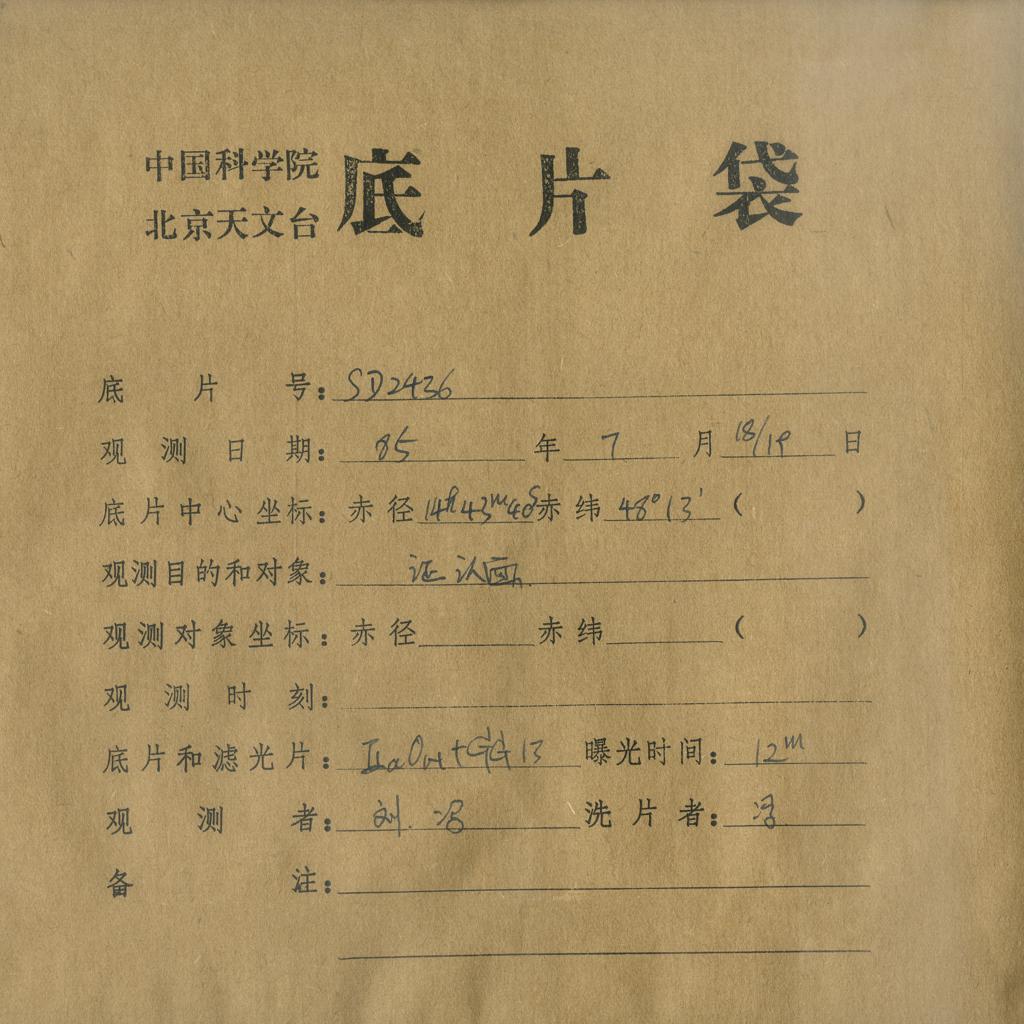 中国科学院
北京天文台
底片袋
底片号：SD2436
观测日期：85年7月18/19日
底片中心坐标：赤径14h43m40s赤纬48°13′（ ）
观测目的和对象：证认
观测对象坐标：赤径 赤纬 （ ）
观测时刻：
底片和滤光片：IIaO +GG13 曝光时间：12m
观测者：刘.冯 洗片者：冯
备注：